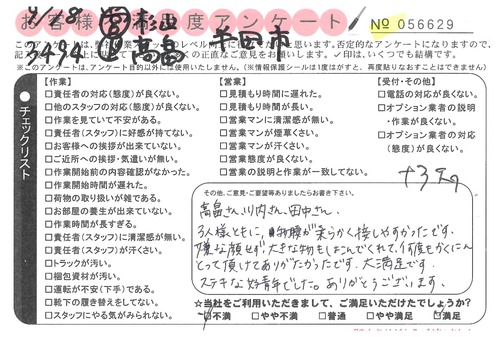 4/18 営 杉山
お客様満足度アンケート
No 056629
3434 高畠 半田市
※このアンケートは、アンケート目的以外には使用いたしません。(※情報保護シールは1度はがすと、再度貼りなおすことはできません)
チェックリスト
【作業】
責任者の対応(態度)が良くない。
他のスタッフの対応(態度)が良くない。
作業を見ていて不安がある。
責任者(スタッフ)に好感が持てない。
お客様への挨拶が出来ていない。
ご近所への挨拶・気遣いが無い。
作業開始前の内容確認がなかった。
作業開始時間が遅れた。
荷物の取り扱いが雑である。
お部屋の養生が出来ていない。
作業時間が長すぎる。
責任者(スタッフ)に清潔感が無い。
責任者(スタッフ)が汗くさい。
トラックが汚い。
梱包資材が汚い。
運転が不安(下手)である。
靴下の履き替えをしてない。
スタッフにやる気がみられない。
【営業】
見積もり時間に遅れた。
見積もり時間が長い。
営業マンに清潔感が無い。
営業マンが煙草くさい。
営業マンが汗くさい。
営業態度が良くない。
営業の説明と作業が一致してない。
【受付・その他】
電話の対応が良くない。
オプション業者の説明・作業が良くない。
オプション業者の対応(態度)が良くない。
その他、ご意見・ご要望等ありましたらお書き下さい。
高畠さん、川内さん、田中さん、
3人様ともに、物腰が柔らかく接しやすかったです。
嫌な顔せず、大きな物もはこんでくれて、何度もかくにん
とって頂けてありがたかったです。大満足です。
ステキな好青年でした。ありがとうございます。
☆当社をご利用いただきまして、ご満足いただけたでしょうか?
不満 やや不満 普通 やや満足 満足